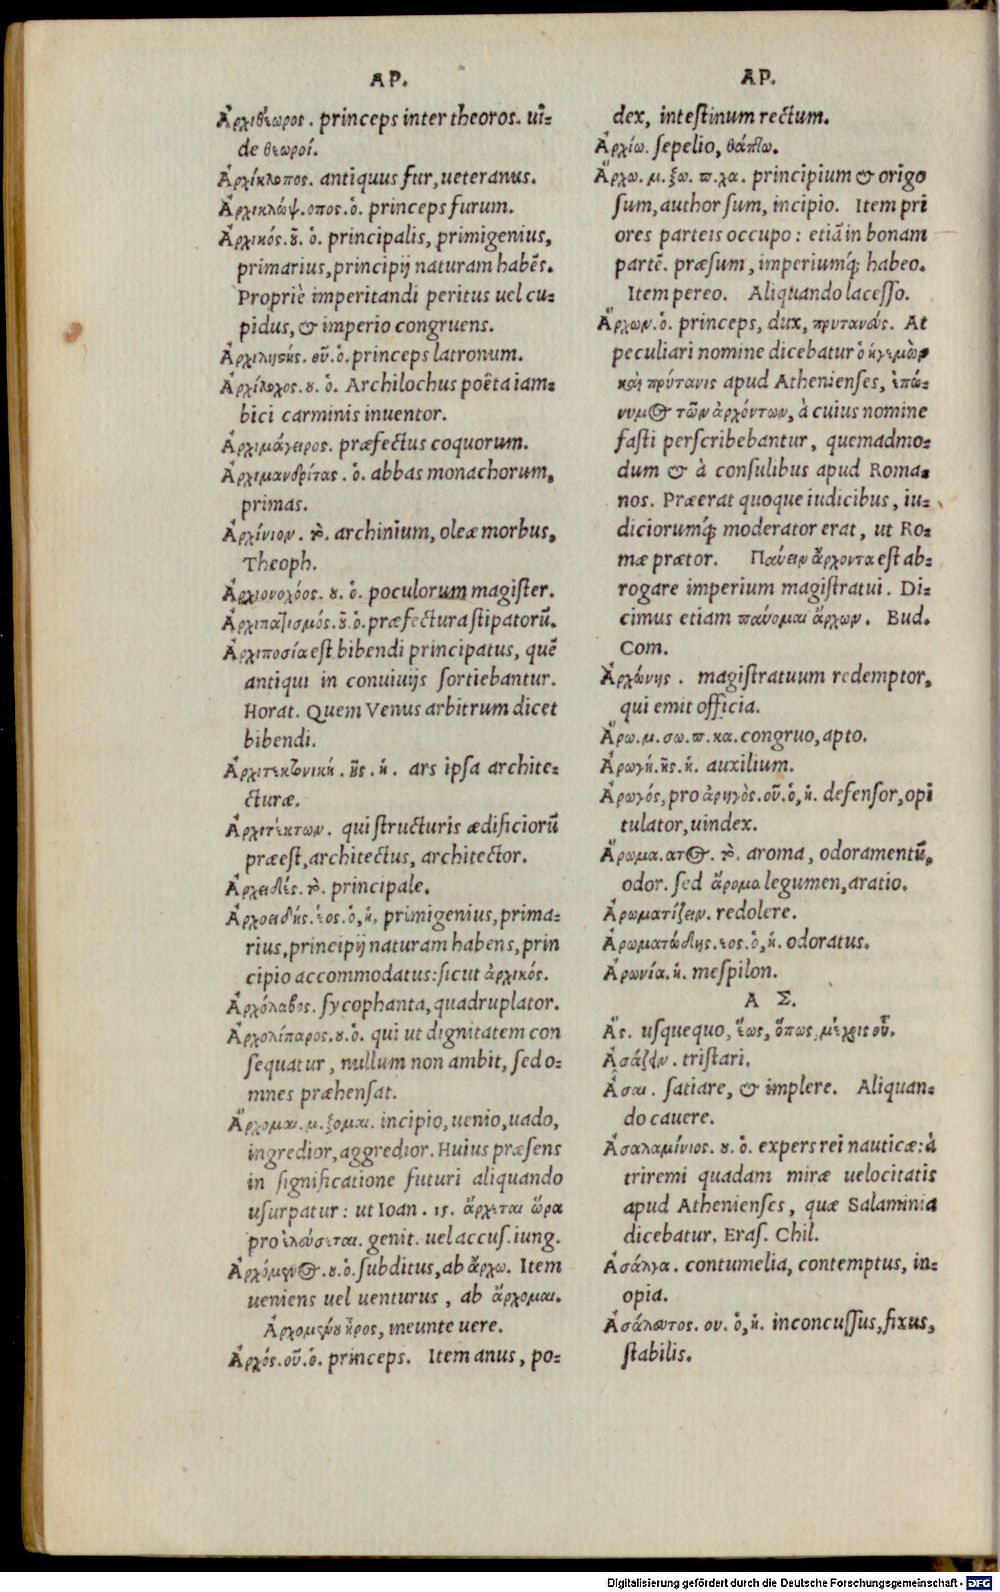 ΑΡ.
Ἀρχιθέωρος. princeps inter theoros. ui=
de θεωροί.
Ἀρχίκλοπος. antiquus fur, ueteranus.
Ἀρχικλώψ. οπος. ὁ. princeps furum.
Ἀρχικός. ȣ͂. ὁ. principalis, primigenius,
primarius, principij naturam habēs.
Propriè imperitandi peritus uel cu=
pidus, & imperio congruens.
Ἀρχιλῃστής. οῦ. ὁ. princeps latronum.
Ἀρχίλοχος. ȣ. ὁ. Archilochus poëta iam=
bici carminis inuentor.
Ἀρχιμάγειρος. præfectus coquorum.
Ἀρχιμανδρίτας. ὁ. abbas monachorum,
primas.
Ἀρχίνιον. τὸ. archinium, oleæ morbus,
Theoph.
Ἀρχιονοχόος. ȣ. ὁ. poculorum magister.
Ἀρχιπαζισμός. ȣ͂. ὁ. præfectura stipatorū.
Ἀρχιποσία est bibendi principatus, quē
antiqui in conuiuijs sortiebantur.
Horat. Quem Venus arbitrum dicet
bibendi.
Ἀρχιτεκτονική. ῆς. ἡ. ars ipsa archite=
cturæ.
Ἀρχιτέκτων. qui structuris ædificiorū
præest, architectus, architector.
Ἀρχειδές. τὸ. principale.
Ἀρχοειδής. έος. ὁ, ἡ. primigenius, prima=
rius, principij naturam habens, prin
cipio accommodatus: sicut ἀρχικός.
Ἀρχόλαβος. sycophanta, quadruplator.
Ἀρχολίπαρος. ȣ. ὁ. qui ut dignitatem con
sequatur, nullum non ambit, sed o=
mnes præhensat.
Ἄρχομαι. μ. ξομαι. incipio, uenio, uado,
ingredior, aggredior. Huius præsens
in significatione futuri aliquando
usurpatur: ut Ioan. 15. ἄρχεται ὥρα
pro ἐλεύσεται. genit. uel accus. iung.
Ἀρχόμενος. ȣ. ὁ. subditus, ab ἄρχω. Item
ueniens uel uenturus, ab ἄρχομαι.
Ἀρχομένȣ ἦρος, ineunte uere.
Ἀρχός. οῦ. ὁ. princeps. Item anus, po=
ΑΡ.
dex, intestinum rectum.
Ἀρχίω. sepelio, θάπτω.
Ἄρχω. μ. ξω. π. χα. principium & origo
sum, author sum, incipio. Item pri
ores parteis occupo: etiā in bonam
partē. præsum, imperiumq́; habeo.
Item pereo. Aliquando lacesso.
Ἄρχων. ὁ. princeps, dux, πρυτανεύς. At
peculiari nomine dicebatur ὁ ἡγεμὼν
καὶ πρύτανις apud Athenienses, ἐπώ=
νυμος τῶν ἀρχόντων, à cuius nomine
fasti perscribebantur, quemadmo=
dum & à consulibus apud Roma=
nos. Præerat quoque iudicibus, iu=
diciorumq́; moderator erat, ut Ro=
mæ prætor. Παύειν ἄρχοντα est ab=
rogare imperium magistratui. Di=
cimus etiam παύομαι ἄρχων. Bud.
Com.
Ἀρχώνης. magistratuum redemptor,
qui emit officia.
Ἄρω. μ. σω. π. κα. congruo, apto.
Ἀρωγή. ῆς. ἡ. auxilium.
Ἀρωγός, pro ἀρηγὸς. οῦ. ὁ, ἡ. defensor, opi
tulator, uindex.
Ἄρωμα. ατος. τὸ. aroma, odoramentū,
odor. sed ἄρομα legumen, aratio.
Ἀρωματίζειν. redolere.
Ἀρωματώδης. εος. ὁ, ἡ. odoratus.
Ἀρωνία. ἡ. mespilon.
Α Σ.
Ἅς. usquequo, ἕως, ὅπως, μέχρις οὗ.
Ἀσάζειν. tristari.
Ἄσαι. satiare, & implere. Aliquan=
do cauere.
Ἀσαλαμίνιος. ȣ. ὁ. expers rei nauticæ: à
triremi quadam miræ uelocitatis
apud Athenienses, quæ Salaminia
dicebatur. Eras. Chil.
Ἀσάλγα. contumelia, contemptus, in=
opia.
Ἀσάλευτος. ου. ὁ, ἡ. inconcussus, fixus,
stabilis.
Digitalisierung gefördert durch die Deutsche Forschungsgemeinschaft - DFG